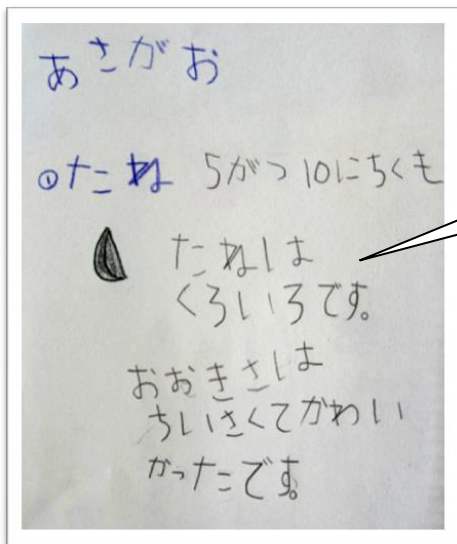 あさがお
①たね 5がつ10にちくも
たねは
くろいろです。
おおきさは
ちいさくてかわい
かったです。